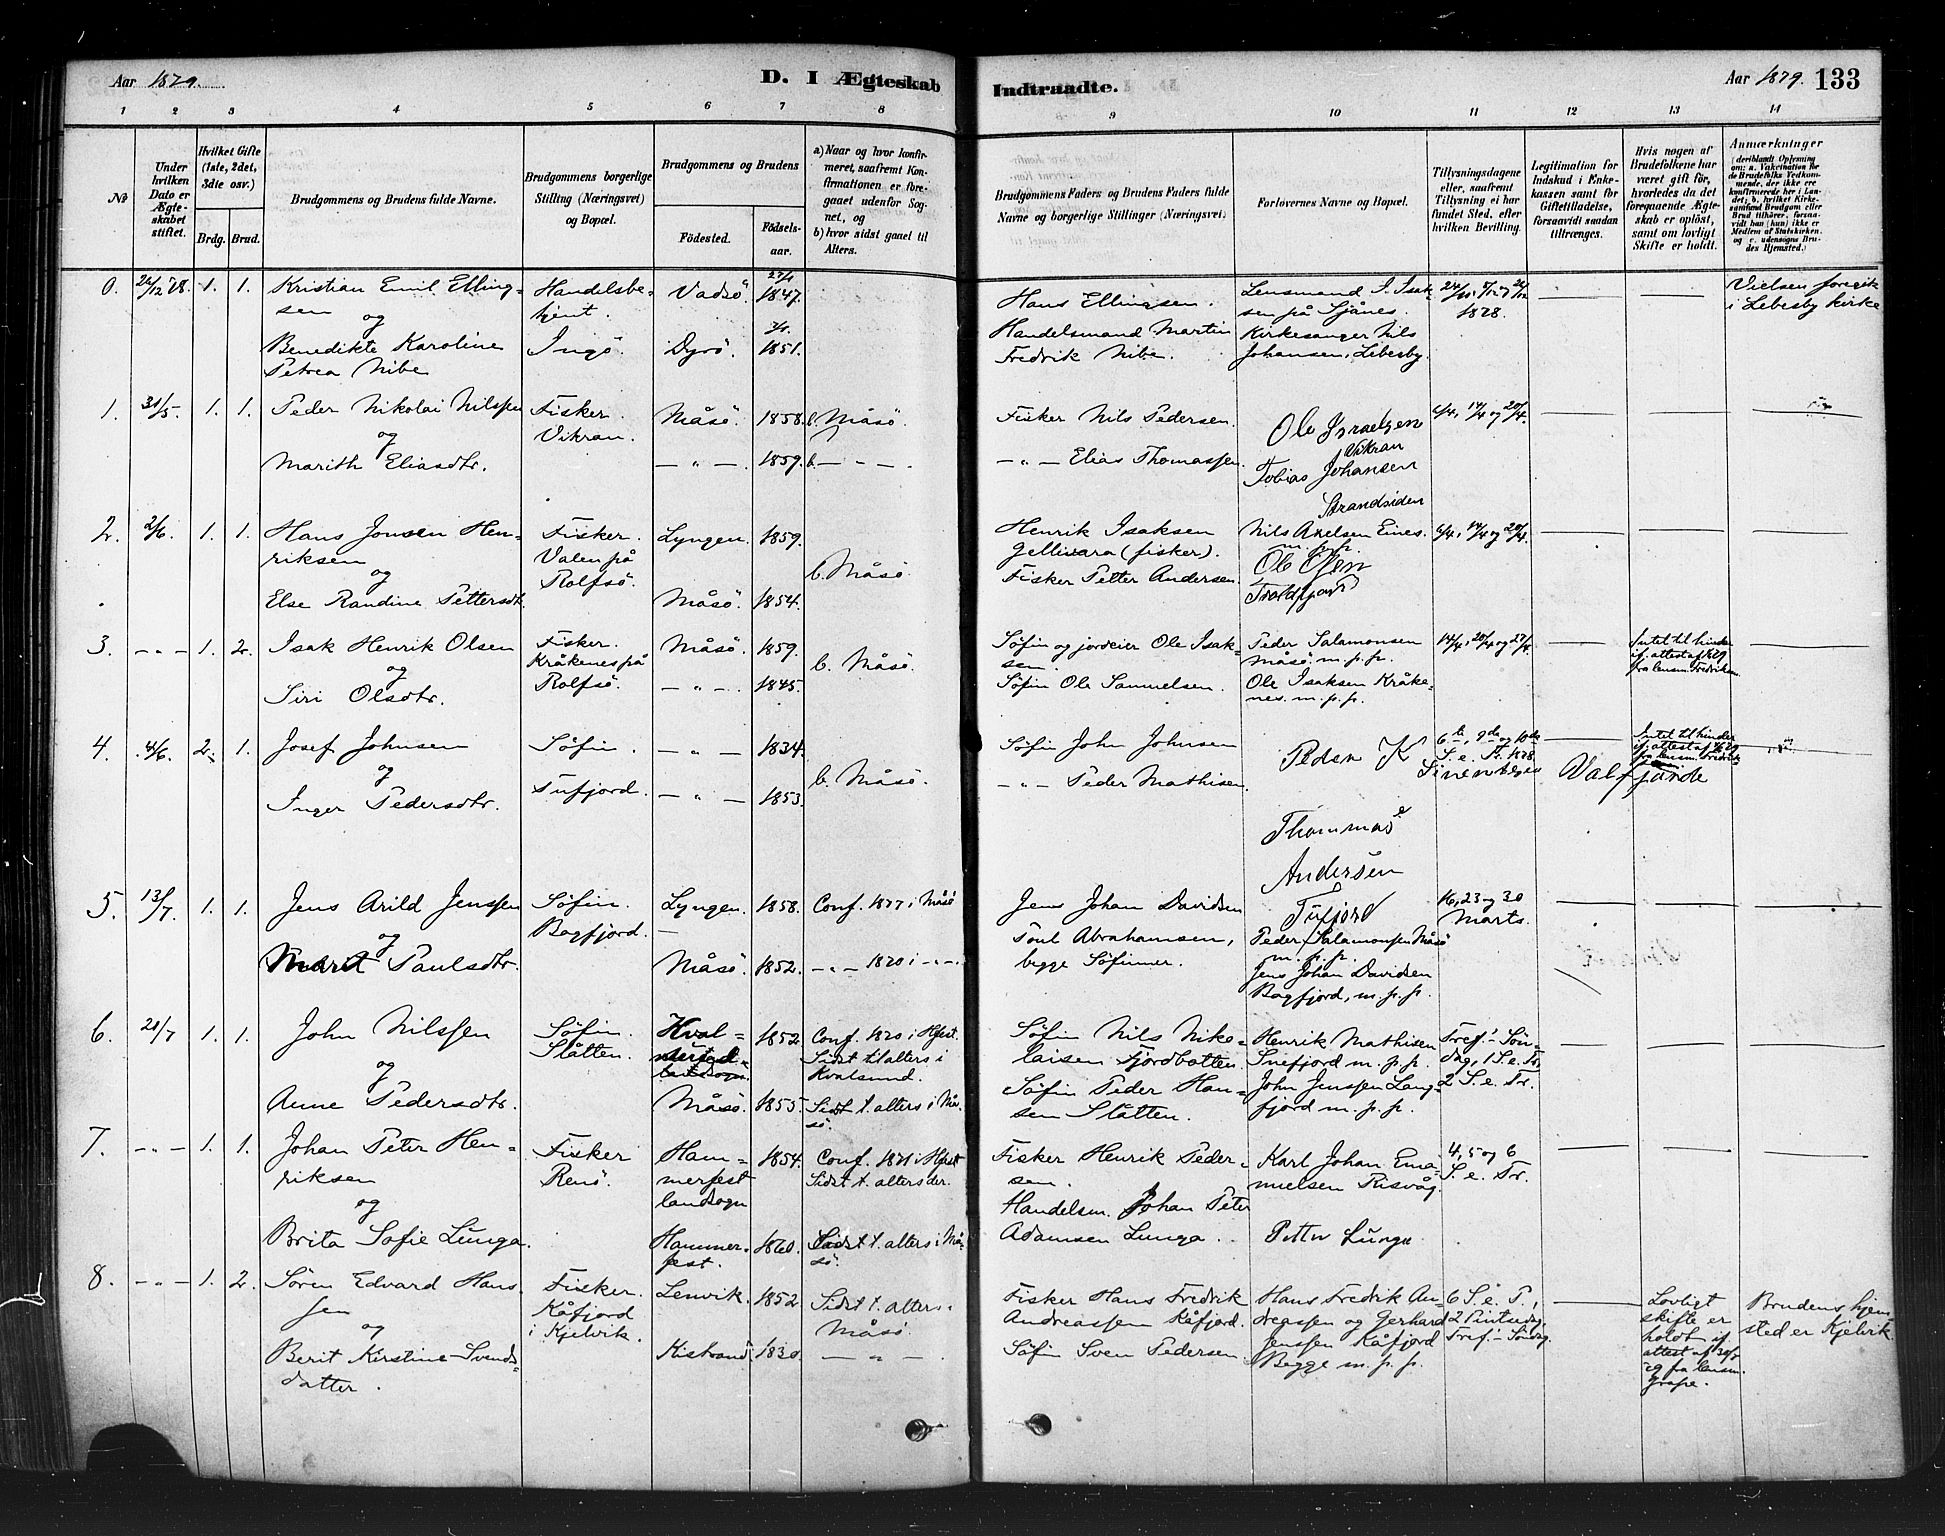 Aar 1879.
D. I Ægteskab
Indtraadte.
Aar 1879. 133
1 2 3 4 5 6 7 8 9 10 11 12 13 14
No
Under hvilken Dato er Ægteskabet stiftet.
Hvilket Gifte (1ste, 2det, 3die osv.)
Brdg. Brud.
Brudgommens og Brudens fulde Navne.
Brudgommens borgerlige Stilling (Næringsvei) og Bopæl.
Brudgommens og Brudens
Fødested.
Fødselsaar.
a) Naar og hvor konfirmeret, saafremt Konfirmationen er foregaaet udenfor Sognet, og
b) hvor sidst gaaet til Alters.
Brudgommens Faders og Brudens Faders fulde Navne og borgerlige Stillinger (Næringsvei)
Forlovernes Navne og Bopæl.
Tillysningsdagene eller, saafremt Tillysning ei har fundet Sted, efter hvilken Bevilling.
Legitimation for Indskud i Enkekassen samt for Giftetilladelse, forsaavidt saadan tiltrænges.
Hvis nogen af Brudefolkene har været gift før, hvorledes da det foregaaende Ægteskab er opløst, samt om lovligt Skifte er holdt.
Anmærkninger
(deriblandt Oplysning om: a. Vakcination for de Brudefolks Vedkommende, der ikke ere konfirmerede her i Landet; b. hvilket Kirkesamfund Brudgom eller Brud tilhører, forsaavidt han (hun) ikke er Medlem af Statskirken, og c. udensogns Brudes Hjemsted.)
0. 26/12 78. 1. 1.
Kristian Emil Ellingsen
og
Benedikte Karoline
Petrea Nibe
Handelsbetjent.
Ingö.
Vadsö. 27/1 1847.
Dyrö. 1851.
Hans Ellingsen.
Handelsmand Martin
Fredrik Nibe.
Lensmand I. Isaksen på Sjånes.
Kirkesanger Nils
Johansen, Lebesby.
1878.
Vielsen foregik
i Lebesby kirke
1. 31/5. 1. 1.
Peder Nikolai Nilssen
og
Marith Eliasdtr.
Fisker.
Vikran.
Måsö. 1858. b. Måsö.
— " — 1859. b. — " —
Fisker Nils Pedersen.
— " — Elias Thomassen.
Ole Israelsen
Vikran
Tobias Johansen
Strandsiden
6/4, 14/4 og 20/4.
2. 2/6. 1. 1.
Hans Jonsen Henriksen
og
Else Randine Pettersdtr.
Fisker.
Valen på
Rolfsö.
Lyngen. 1859.
Måsö. 1854.
b. Måsö.
Henrik Isaksen
Gellivara (fisker).
Fisker Petter Andersen.
Nils Axelsen Eines.
m. p. p.
Ole Olsen
Troldfjord
6/4, 14/4 og 20/4.
3. — " — 1. 2.
Isak Henrik Olsen
og
Siri Olsdtr.
Fisker.
Kråkenes på
Rolfsö.
Måsö. 1859.
— " — 1845.
b. Måsö.
Söfin og jordeier Ole Isaksen.
Söfin Ole Samuelsen.
Peder Salamonsen
Måsö. m. p. p.
Ole Isaksen Kråkenes. m. p. p.
14/4, 20/4 og 27/4.
Intet til hinder
if. attest af
fra lensm. Fredriksen
4. 4/6. 2. 1.
Josef Johnsen
og
Inger Pedersdtr.
Söfin.
Tufjord.
— " — 1834.
— " — 1853.
b. Måsö.
Söfin John Johnsen
— " — Peder Mathisen.
Peder K
Valfjorde
Thommas
Andersen
Tufjord
6te, 9de og 10de
S. e. Tr. 1878.
Intet til hinder
if. attest af
fra lensm. Fredriks
5. 13/7. 1. 1.
Jens Arild Jenssen
og
Marit Paulsdtr.
Söfin.
Bagfjord.
Lyngen. 1858. Conf. 1877 i Måsö
Måsö. 1852. — " — 1870 i — " —
Jens Johan Davidsen
Poul Abrahamsen,
begge Söfinner.
Peder Salamonsen Måsö
m. p. p.
Jens Johan Davidsen
Bagfjord, m. p. p.
16, 23 og 30
Marts.
6. 20/7 1. 1.
John Nilssen
og
Anne Pedersdtr.
Söfin.
Slåtten.
Kvalsund 1852
landsogn
Måsö. 1855.
Conf. 1870 i Hfest.
Sidst til alters i
Kvalsund.
Sidst t. alters i Måsö
Söfin Nils Nikolaisen Fjordbotten.
Söfin Peder Hansen Slåtten.
Henrik Mathisen
Snefjord m. p. p.
John Jenssen Langfjord m. p. p.
Tref.-Söndag, 1 S. e. Tr,
2 S. e. Tr.
7. — " — 1. 1.
Johan Peter Henriksen
og
Brita Sofie Lunga.
Fisker
Renö.
Hammerfest
landsogn 1854.
Hammerfest. 1860.
Conf. 1871 i Hfest
Sidst t. alters der.
Sidst t. alters i Måsö.
Fisker Henrik Pedersen.
Handelsm. Johan Peter
Adamsen Lunga.
Karl Johan Emanuelsen Risvåg.
Petter Lunga
4, 5 og 6
S. e. Tr.
8. — " — 1. 2.
Sören Edvard Hanssen
og
Berit Kirstine Svendsdatter.
Fisker.
Kåfjord
i Kjelvik.
Lenvik. 1852
Kistrand 1830.
Sidst t. alters i
Måsö.
— " —
Fisker Hans Fredrik
Andreassen Kåfjord.
Söfin Sven Pedersen.
Hans Fredrik Andreassen og Gerhard
Jenssen Kåfjord
Begge m. p. p.
6 S. e. P.,
2 Pintsedag,
Tref.-Söndag.
Lovligt
skifte er
holdt if.
attest af
fra lensm.
Grape.
Brudens hjemsted er Kjelvik.